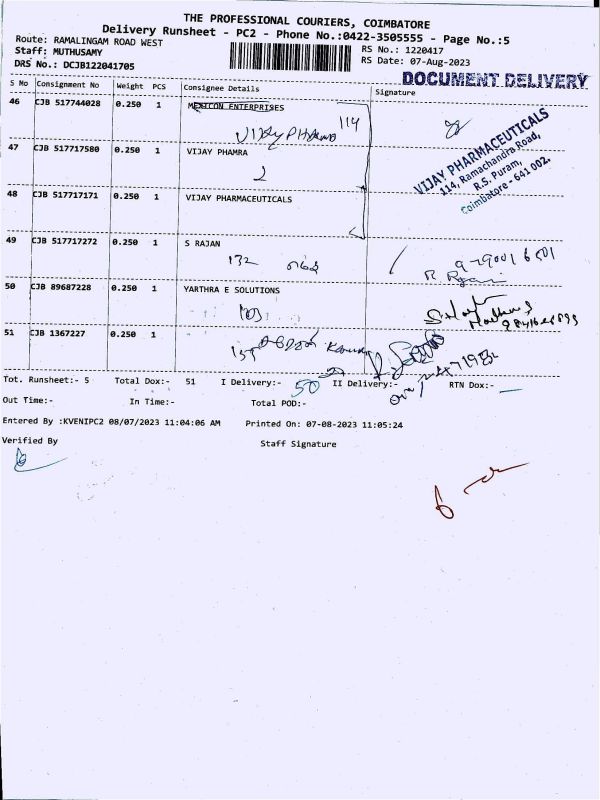 THE PROFESSIONAL COURIERS, COIMBATORE
Delivery Runsheet - PC2 - Phone No.:0422-3505555 - Page No.:5
Route: RAMALINGAM ROAD WEST
RS No.: 1220417
Staff: MUTHUSAMY
RS Date: 07-Aug-2023
DRS No.: DCJB122041705
DOCUMENT DELIVERY
S No Consignment No Weight PCS Consignee Details Signature
46 CJB 517744028 0.250 1 MEXICON ENTERPRISES
VIJAY PHARMA 114
VIJAY PHARMACEUTICALS
114, Ramachandra Road,
R.S. Puram,
Coimbatore - 641 002.
47 CJB 517717580 0.250 1 VIJAY PHAMRA
48 CJB 517717171 0.250 1 VIJAY PHARMACEUTICALS
49 CJB 517717272 0.250 1 S RAJAN
132
50 CJB 89687228 0.250 1 YARTHRA E SOLUTIONS
51 CJB 1367227 0.250 1
Tot. Runsheet:- 5 Total Dox:- 51 I Delivery:- 50 II Delivery:- RTN Dox:-
Out Time:- In Time:- Total POD:-
Entered By :KVENIPC2 08/07/2023 11:04:06 AM Printed On: 07-08-2023 11:05:24
Verified By Staff Signature